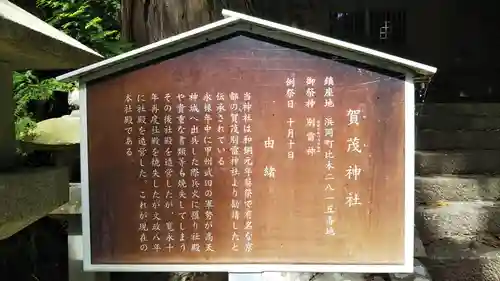 賀茂神社
鎮座地 浜岡町比木二八一五番地
御祭神 別雷神
例祭日 十月十日
由緒
当神社は和銅元年葵祭で有名な京
都の賀茂別雷神社より勧請したと
伝承されている。
永禄年中に甲州武田の軍勢が高天
神城へ出兵した際兵火に罹り社殿
や貴重な書類等も焼失してしまう
その後社殿を造営したが、寛永十
年再度社殿を焼失したが文政八年
に社殿を造営した。これが現在の
本社殿である